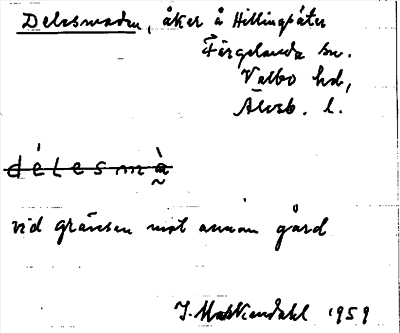 Delesmaden, åker å Hillingsäter
Färgelanda sn.
Valbo hd,
Älvsb. l.
délesmà
vid gränsen mot annan gård
J. 1959